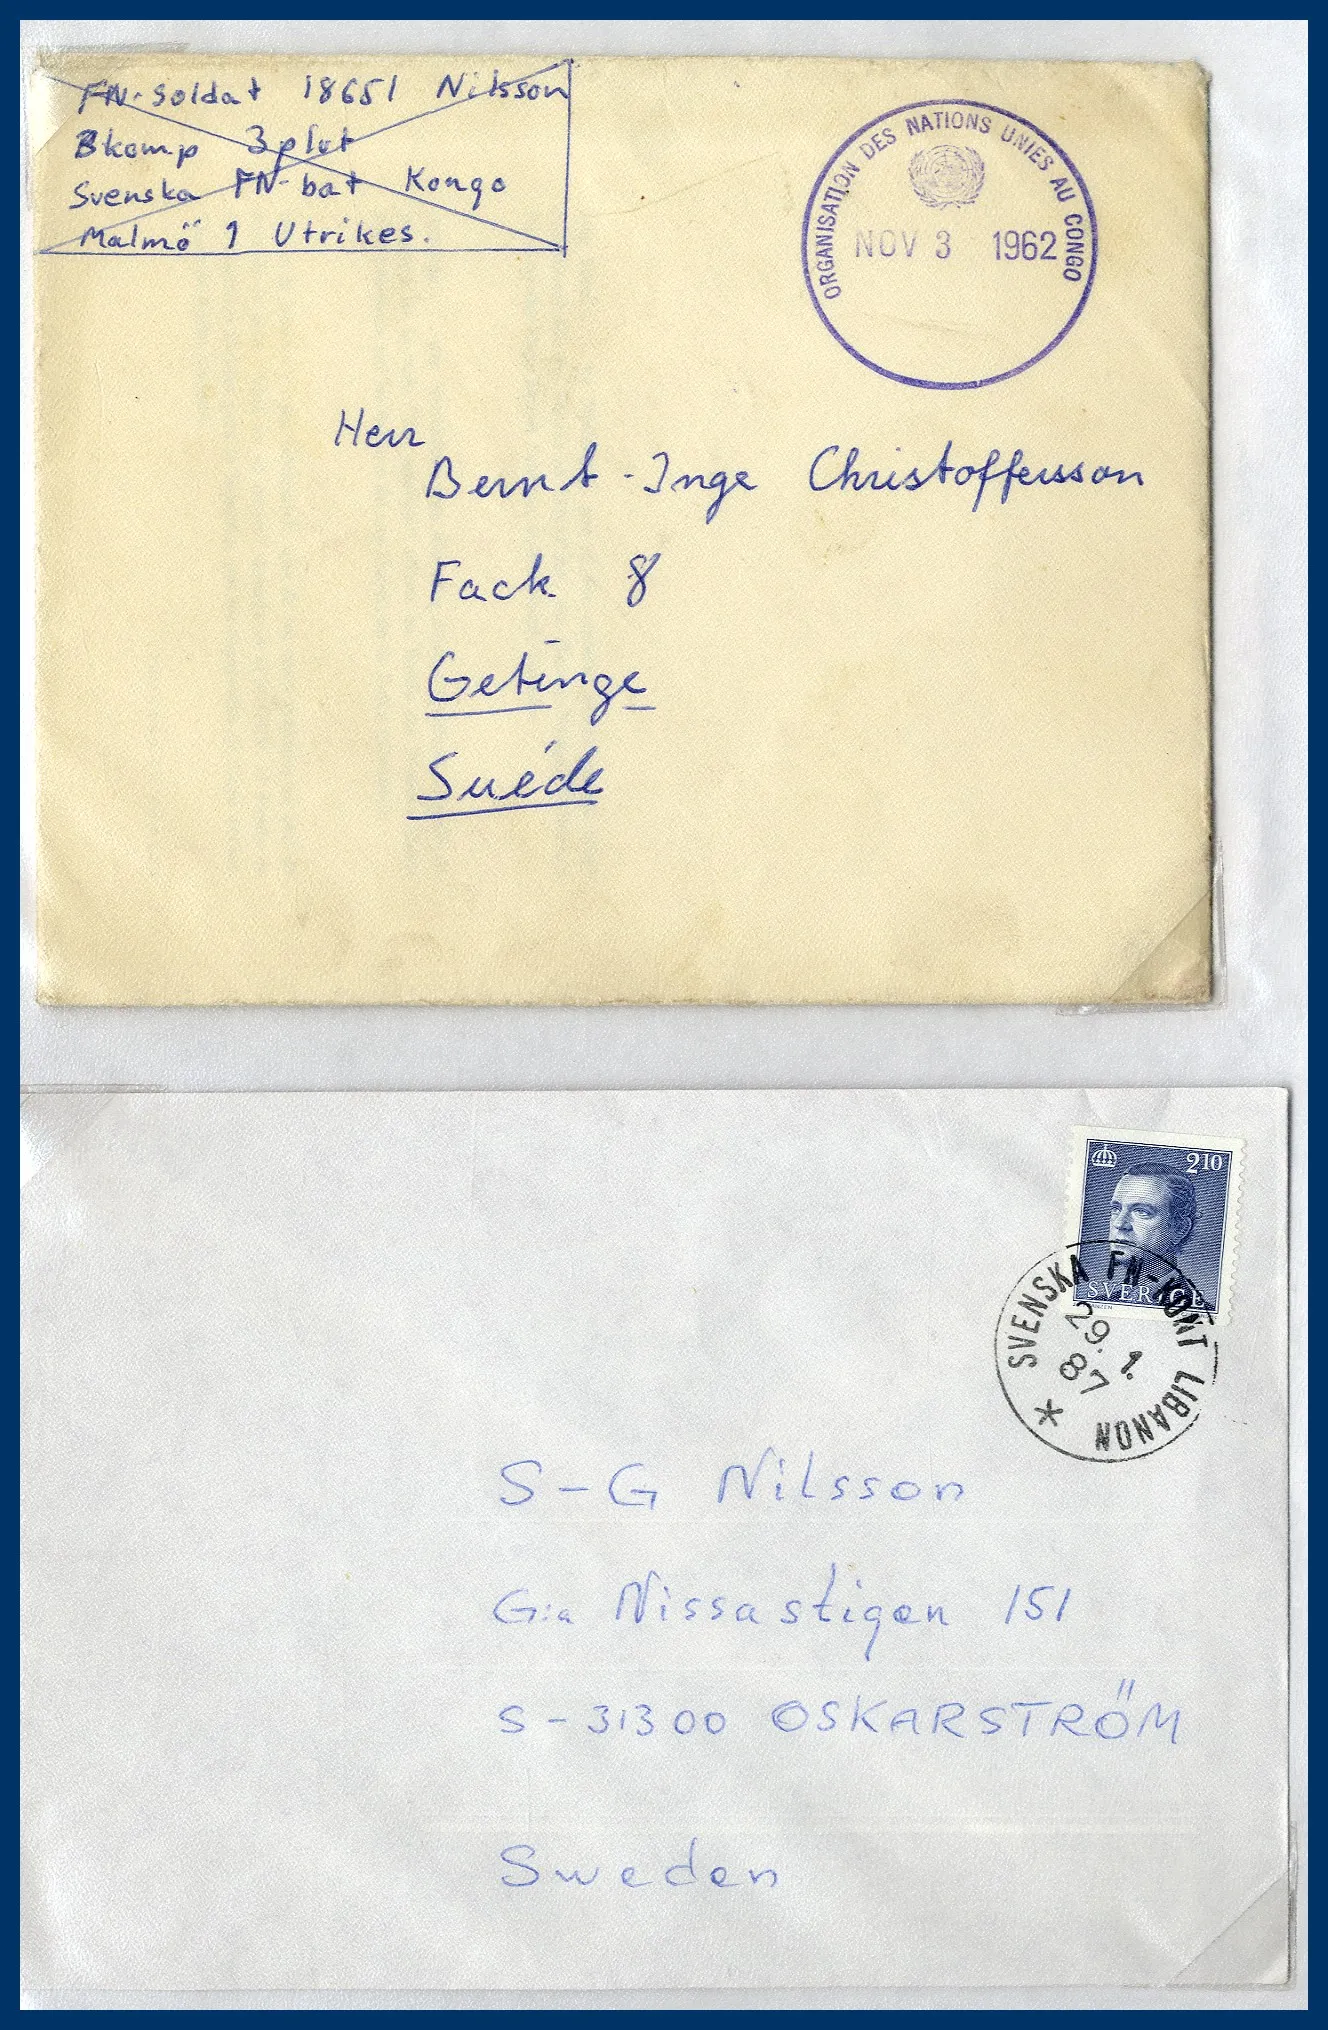 FN-Soldat 18651 Nilsson
Bkomp 3plut
Svenska FN-bat Kongo
Malmö 1 Utrikes.
ORGANISATION DES NATIONS UNIES AU CONGO
NOV 3 1962
Herr
Bernt-Inge Christoffersson
Fack 8
Getinge
Suéde
210
SVERIGE
SVENSKA FN-KONT LIBANON
29. 1.
87
S-G Nilsson
G:a Nissastigen 151
S-31300 OSKARSTRÖM
Sweden